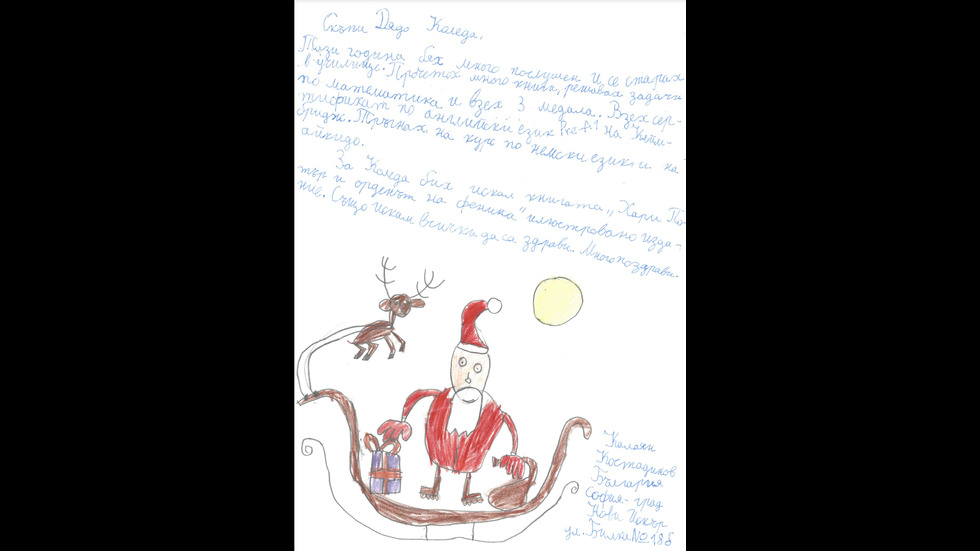 Скъпи Дядо Коледа,
Тази година бях много послушен и се старах
в училище. Прочетох много книги, решавах задачи
по математика и взех 3 медала. Взех сер-
тификат по английски език Pre A1 на Кейм-
бридж. Тръгнах на курс по немски език и на
айкидо.
За Коледа бих искал книгата „Хари По-
тър и орденът на феникса" илюстровано изда-
ние. Също искам всички да са здрави. Много поздрави.
Калоян
Костадинов
България
София-град
Нови Искър
ул. Билка №18б